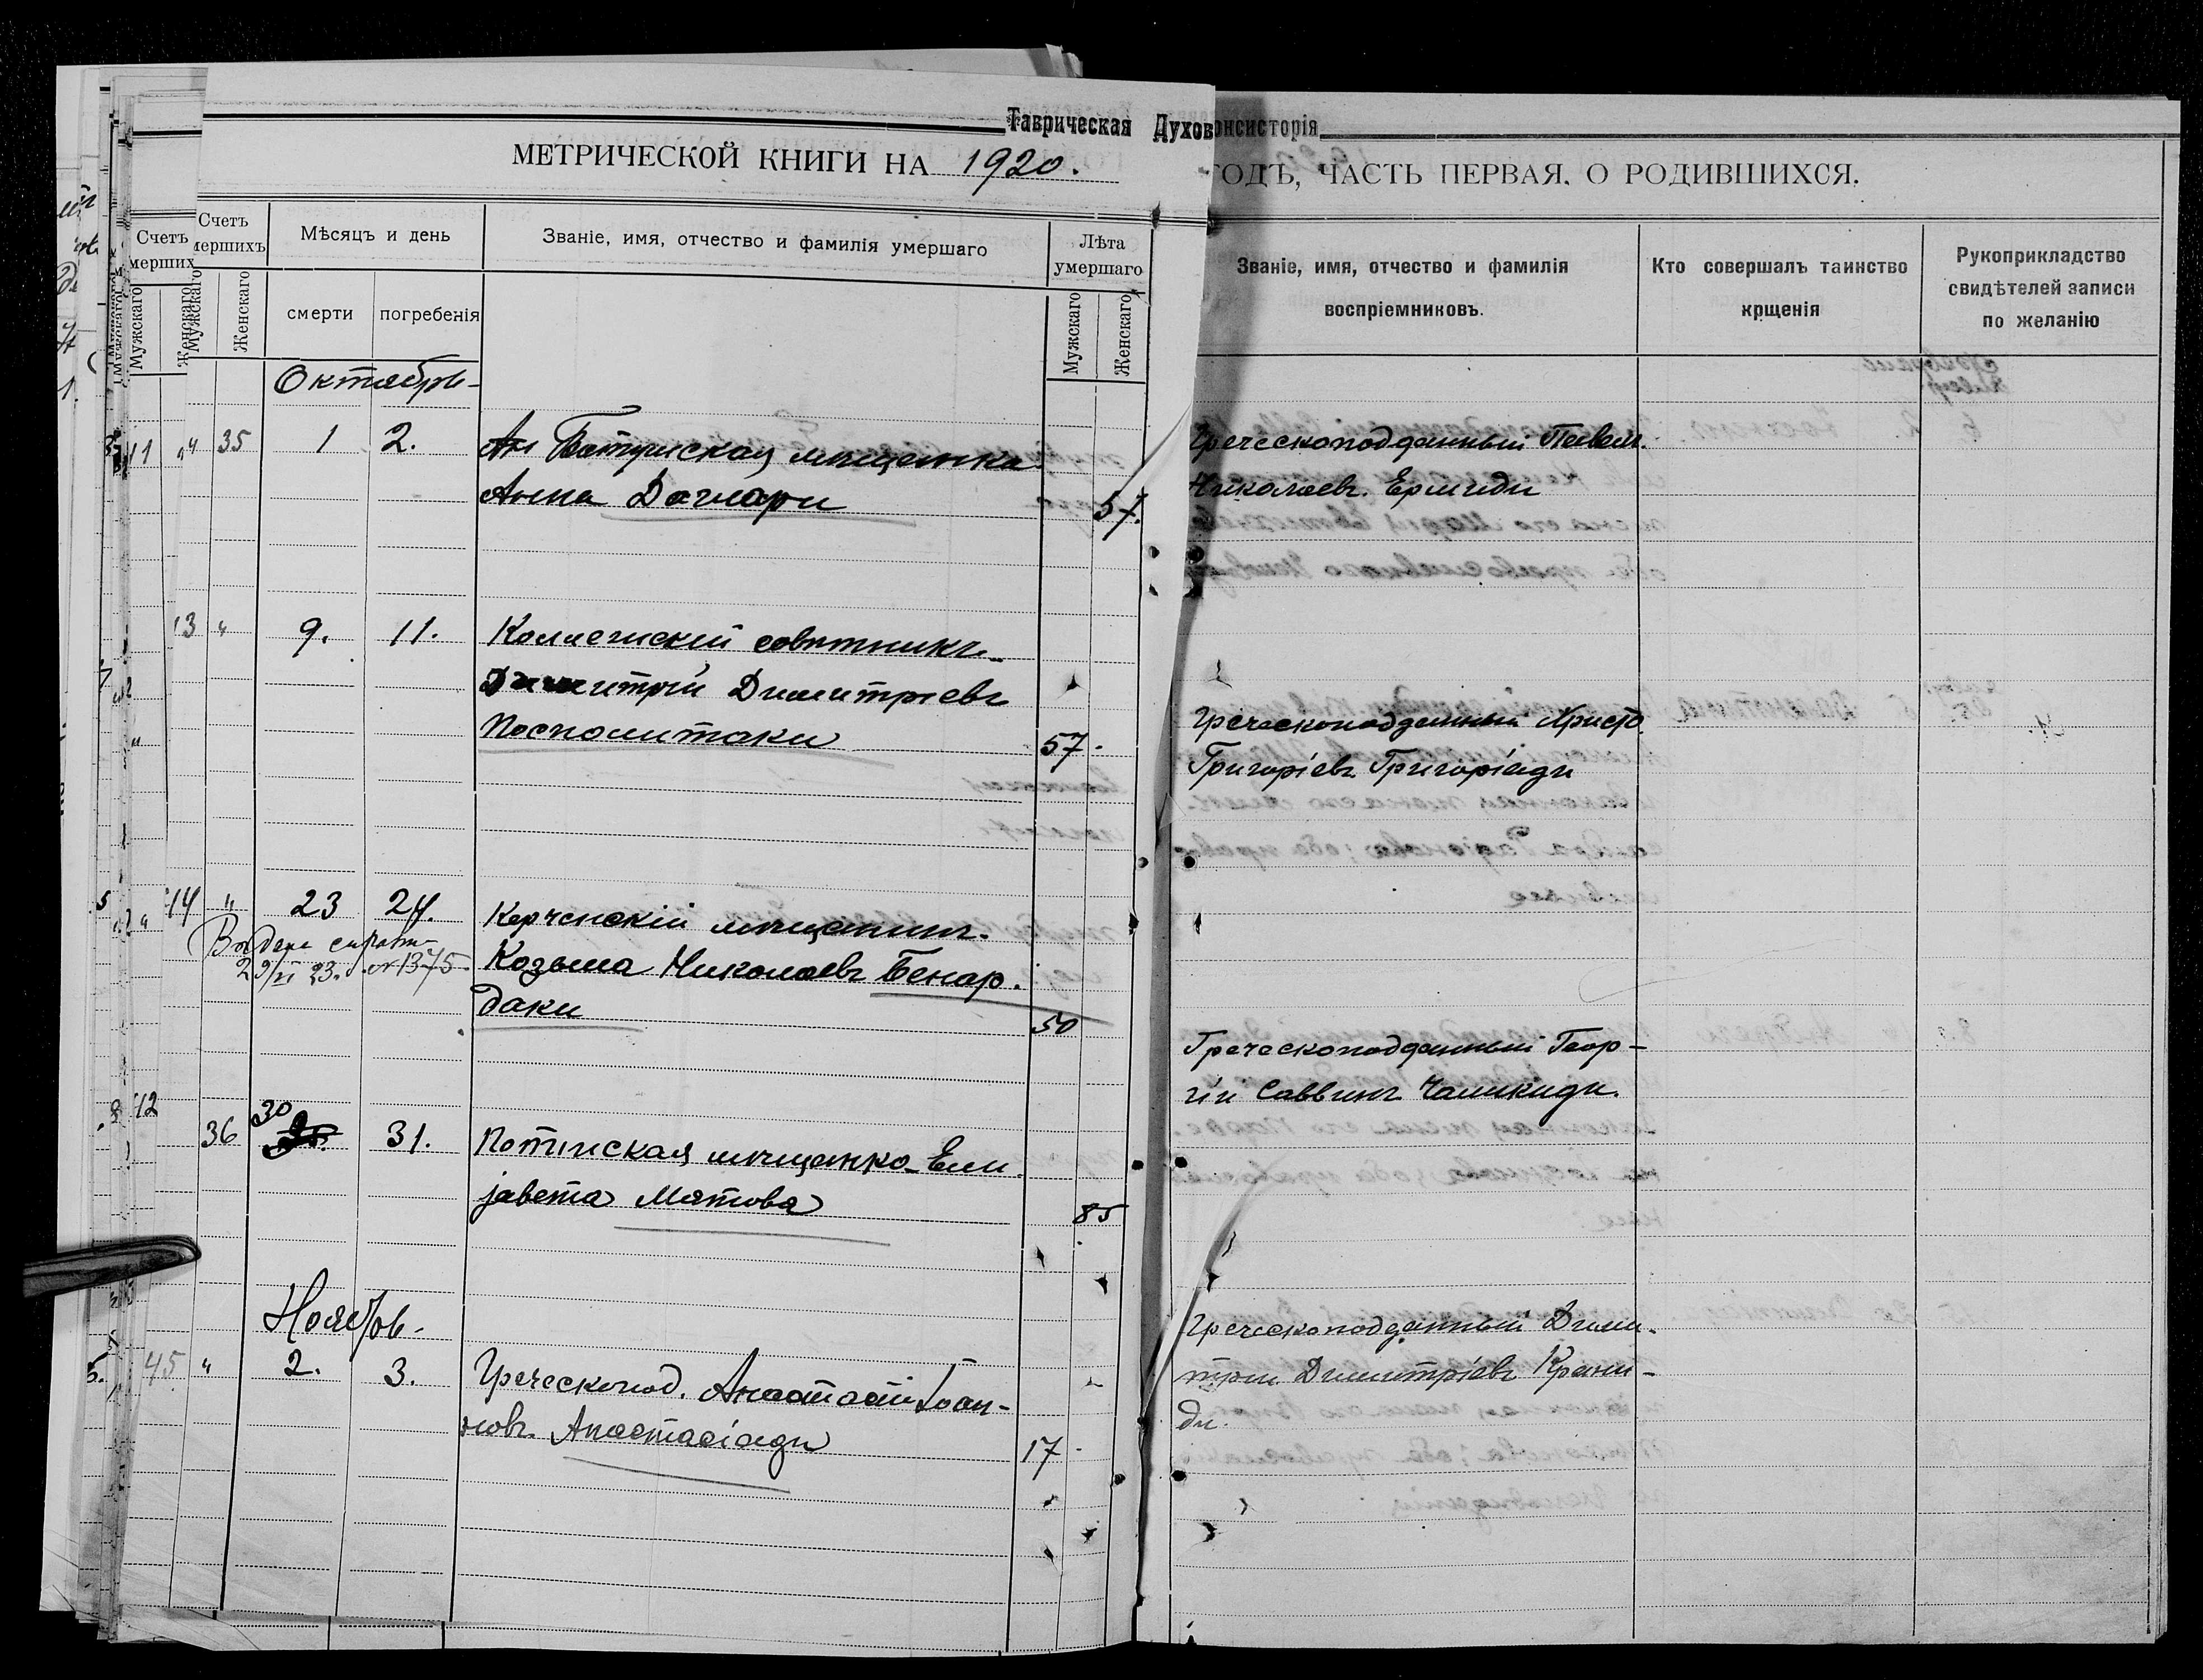 Таврическая Духов
онсисторія
МЕТРИЧЕСКОЙ КНИГИ НА 1920.
Счетъ
мерших
Мужскаго
Женскаго
Счетъ
мершихъ
Мужскаго
Женскаго
Мѣсяцъ и день
смерти
погребенія
Званіе, имя, отчество и фамилія умершаго
Лѣта
умершаго
Мужскаго
Женскаго
Октябрь
" 35 1 2. Батумская мѣщанка
Анна 57.
13 " 9. 11. Коллегискій совѣтникъ
Димитрій Димитріевъ
Посполитаки 57.
44 " 23 24. Керченскій мѣщанинъ
Выдана справка
29/VI 23. №1375
Козьма Николаевъ Бенар
даки 50
36 30 31. Потійская мѣщанка Ели
завета Мятова 85
Ноябрь
45 " 2. 3. Греческопод. Анастасій Іоан-
новъ Анастасіади 17
ГОДЪ, ЧАСТЬ ПЕРВАЯ, О РОДИВШИХСЯ.
Званіе, имя, отчество и фамилія
воспріемниковъ.
Кто совершалъ таинство
крщенія
Рукоприкладство
свидѣтелей записи
по желанію
Греческоподданный Павелъ
Николаевъ Ермиди
Греческоподданный Христо
Григоріевъ Григоріади
Греческоподданный Геор-
гій Саввинъ Чаликиди.
Греческоподданный Дими-
трій Димитріевъ Крани-
ди.